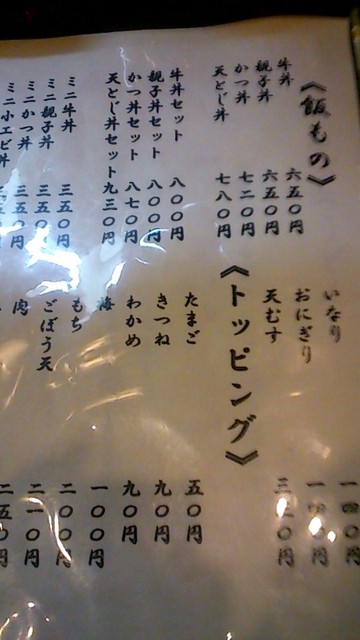 《飯もの》
牛丼 六五〇円
親子丼 六五〇円
かつ丼 七二〇円
天とじ丼 七八〇円
牛丼セット 八〇〇円
親子丼セット 八〇〇円
かつ丼セット 八七〇円
天とじ丼セット 九三〇円
ミニ牛丼 三五〇円
ミニ親子丼 三五〇円
ミニかつ丼 三五〇円
ミニ小エビ丼
いなり 一四〇円
おにぎり
天むす
《トッピング》
たまご 五〇円
きつね 九〇円
わかめ 九〇円
梅 一〇〇円
もち 二〇〇円
ごぼう天 二一〇円
肉 二五〇円